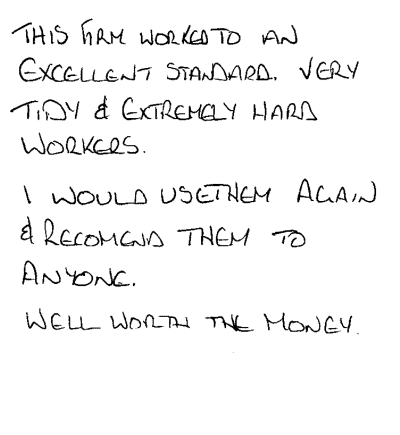 THIS FIRM WORKED TO AN
EXCELLENT STANDARD. VERY
TIDY & EXTREMELY HARD
WORKERS.
I WOULD USE THEM AGAIN
& RECOMEND THEM TO
ANYONE.
WELL WORTH THE MONEY.